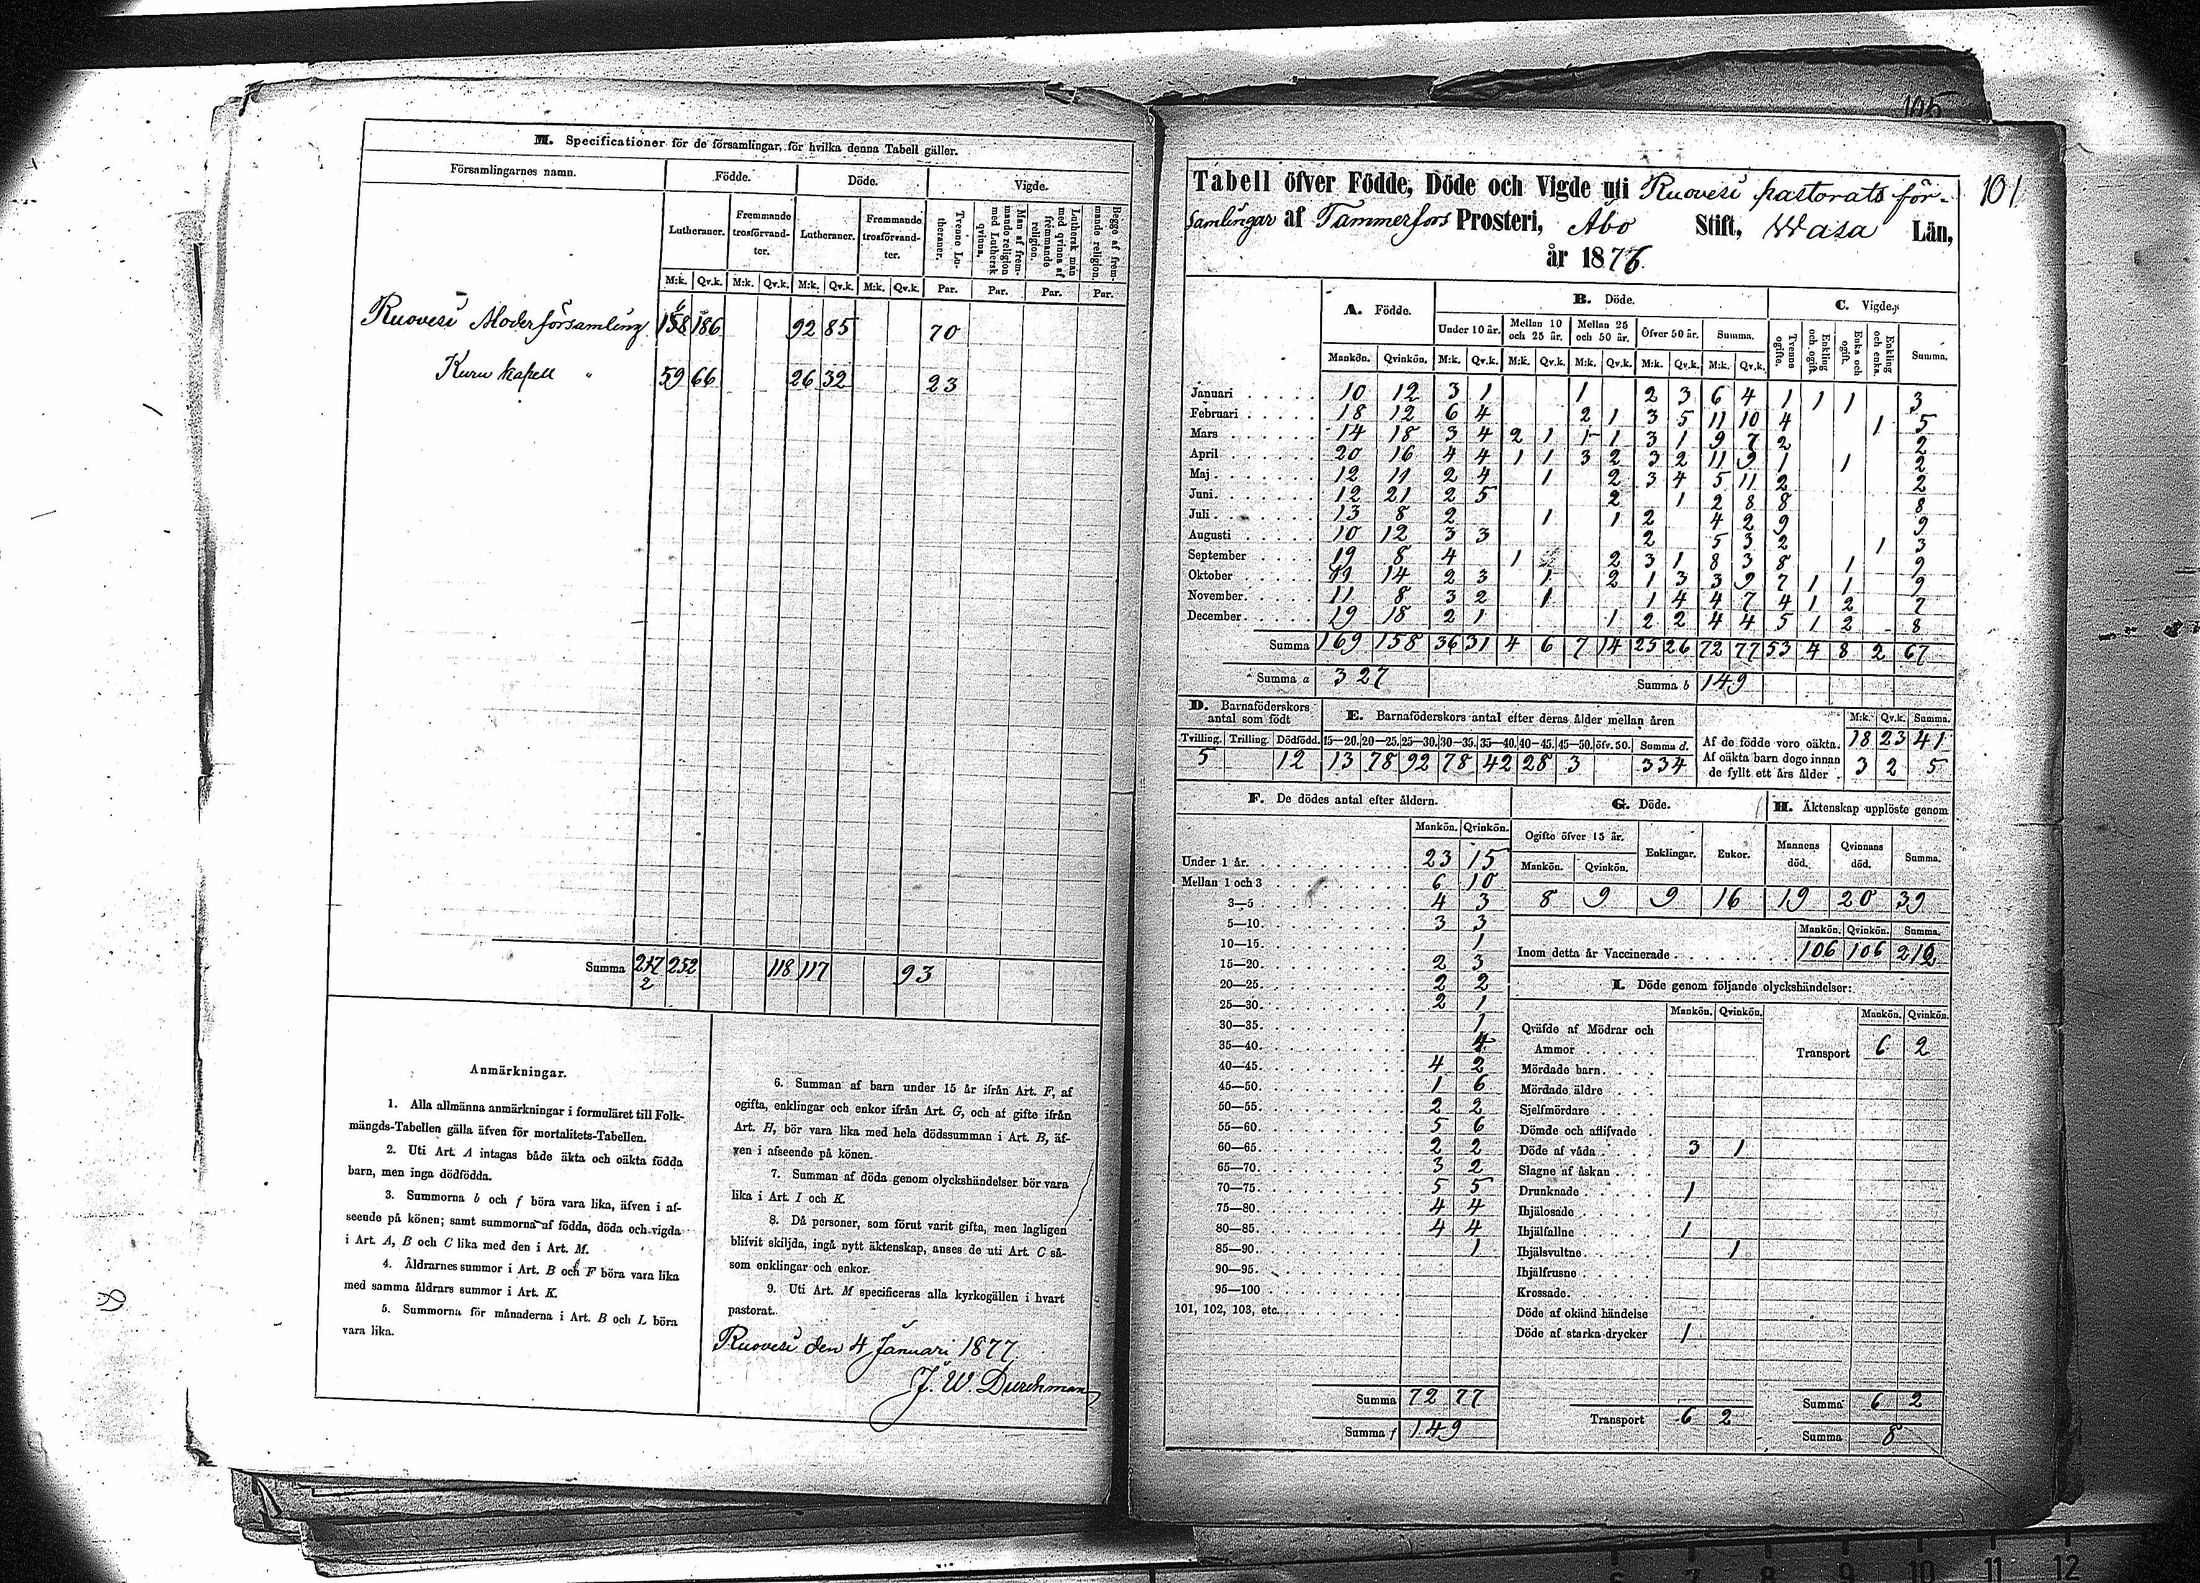 M. Specificationer för de församlingar, för hvilka denna Tabell gäller.
Församlingarnes namn. Födde. Döde. Vigde.
Lutheraner. Fremmande trosförvandter. Lutheraner. Fremmande trosförvandter. Tvenne Lutheraner. Man af fremmande religion med Luthersk qvinna. Luthersk man med qvinna af främmande religion. Begge af fremmande religion.
M:k. Qv.k. M:k. Qv.k. M:k. Qv.k. M:k. Qv.k. Par. Par. Par. Par.
Ruovesi Moderförsamling 158 186 92 85 70
Kuru kapell " 59 66 26 32 23
Summa 217 252 118 117 93
2
Anmärkningar.
1. Alla allmänna anmärkningar i formuläret till Folk-
mängds-Tabellen gälla äfven för mortalitets-Tabellen.
2. Uti Art. A intagas både äkta och oäkta födda
barn, men inga dödfödda.
3. Summorna b och f böra vara lika, äfven i af-
seende på könen; samt summorna af födda, döda och vigda
i Art. A, B och C lika med den i Art. M.
4. Åldrarnes summor i Art. B och F böra vara lika
med samma åldrars summor i Art. K.
5. Summorna för månaderna i Art. B och L böra
vara lika.
6. Summan af barn under 15 år ifrån Art. F, af
ogifta, enklingar och enkor ifrån Art. G, och af gifte ifrån
Art. H, bör vara lika med hela dödssumman i Art. B, äf-
ven i afseende på könen.
7. Summan af döda genom olyckshändelser bör vara
lika i Art. I och K.
8. Då personer, som förut varit gifta, men lagligen
blifvit skiljda, ingå nytt äktenskap, anses de uti Art. C så-
som enklingar och enkor.
9. Uti Art. M specificeras alla kyrkogällen i hvart
pastorat.
Ruovesi den 4 Januari 1877
J. W. Durchman
105
101
Tabell öfver Födde, Döde och Vigde uti Ruovesi pastorats för-
samlingar af Tammerfors Prosteri, Åbo Stift, Wasa Län,
år 1876.
A. Födde. B. Döde. C. Vigde.
Under 10 år. Mellan 10 och 25 år. Mellan 25 och 50 år. Öfver 50 år. Summa. Tvenne ogifte. Enkling och ogift. Enka och ogift. Enkling och enka. Summa.
Mankön. Qvinkön. M:k. Qv.k. M:k. Qv.k. M:k. Qv.k. M:k. Qv.k. M:k. Qv.k.
Januari 10 12 3 1 1 2 3 6 4 1 1 1 3
Februari 18 12 6 4 2 1 3 5 11 10 4 1 5
Mars 14 18 3 4 2 1 1 1 3 1 9 7 2 2
April 20 16 4 4 1 1 3 2 3 2 11 9 1 1 2
Maj 12 11 2 4 1 2 3 4 5 11 2 2
Juni 12 21 2 5 2 1 2 8 8 8
Juli 13 8 2 1 1 2 4 2 9 9
Augusti 10 12 3 3 2 5 3 2 1 3
September 19 8 4 1 2 3 1 8 3 8 1 9
Oktober 11 14 2 3 1 2 1 3 3 9 7 1 1 9
November 11 8 3 2 1 1 4 4 7 4 1 2 7
December 19 18 2 1 1 2 2 4 4 5 1 2 8
Summa 169 158 36 31 4 6 7 14 25 26 72 77 53 4 8 2 67
Summa a 327 Summa b 149
D. Barnaföderskors antal som födt
Tvilling. Trilling. Dödfödd.
5 12
E. Barnaföderskors antal efter deras ålder mellan åren
15—20. 20—25. 25—30. 30—35. 35—40. 40—45. 45—50. öfv. 50. Summa d.
13 78 92 78 42 28 3 334
M:k. Qv.k. Summa.
Af de födde voro oäkta. 18 23 41
Af oäkta barn dogo innan de fyllt ett års ålder 3 2 5
F. De dödes antal efter åldern.
Mankön. Qvinkön.
Under 1 år. 23 15
Mellan 1 och 3 6 10
3—5 4 3
5—10. 3 3
10—15. 1
15—20. 2 3
20—25. 2 2
25—30. 2 1
30—35. 1
35—40. 4
40—45. 4 2
45—50. 1 6
50—55. 2 2
55—60. 5 6
60—65. 2 2
65—70. 3 2
70—75. 5 5
75—80. 4 4
80—85. 4 4
85—90. 1
90—95.
95—100
101, 102, 103, etc.
Summa 72 77
Summa f 149
G. Döde.
Ogifte öfver 15 år. Enklingar. Enkor.
Mankön. Qvinkön.
8 9 9 16
H. Äktenskap upplöste genom
Mannens död. Qvinnans död. Summa.
19 20 39
Mankön. Qvinkön. Summa.
Inom detta år Vaccinerade 106 106 212
I. Döde genom följande olyckshändelser:
Mankön. Qvinkön. Mankön. Qvinkön.
Qväfde af Mödrar och Ammor
Transport 6 2
Mördade barn.
Mördade äldre
Sjelfmördare
Dömde och aflifvade
Döde af våda 3 1
Slagne af åskan
Drunknade 1
Ihjälosade
Ihjälfallne 1
Ihjälsvultne 1
Ihjälfrusne
Krossade.
Döde af okänd händelse
Döde af starka drycker 1
Transport 6 2
Summa 6 2
Summa 8
6 7 8 9 10 11 12